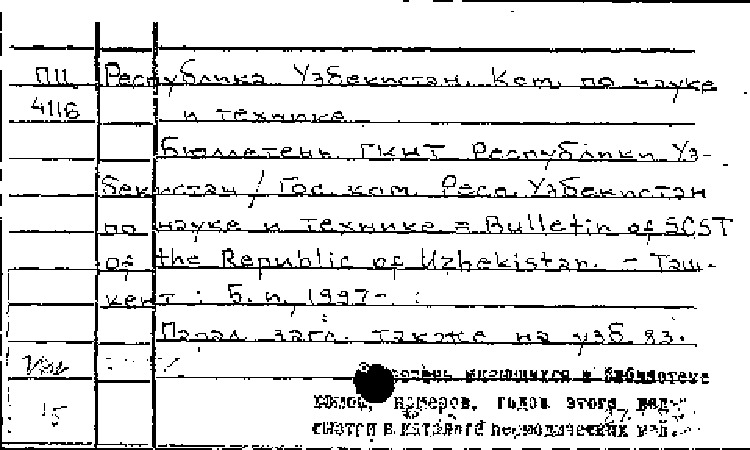 ПЦ Республика Узбекистан. Ком. по науке
4116 и технике
Бюллетень ГКНТ Республики Уз-
бекистан / Гос. ком. Респ. Узбекистан
по науке и технике = Bulletin of SCST
of the Republic of Uzbekistan. - Таш-
кент : Б. и., 1997-. :
Парал. загл. также на узб. яз.
имеющихся в библиотеке
томов, номеров, годов этого
смотри в каталоге периодических
15